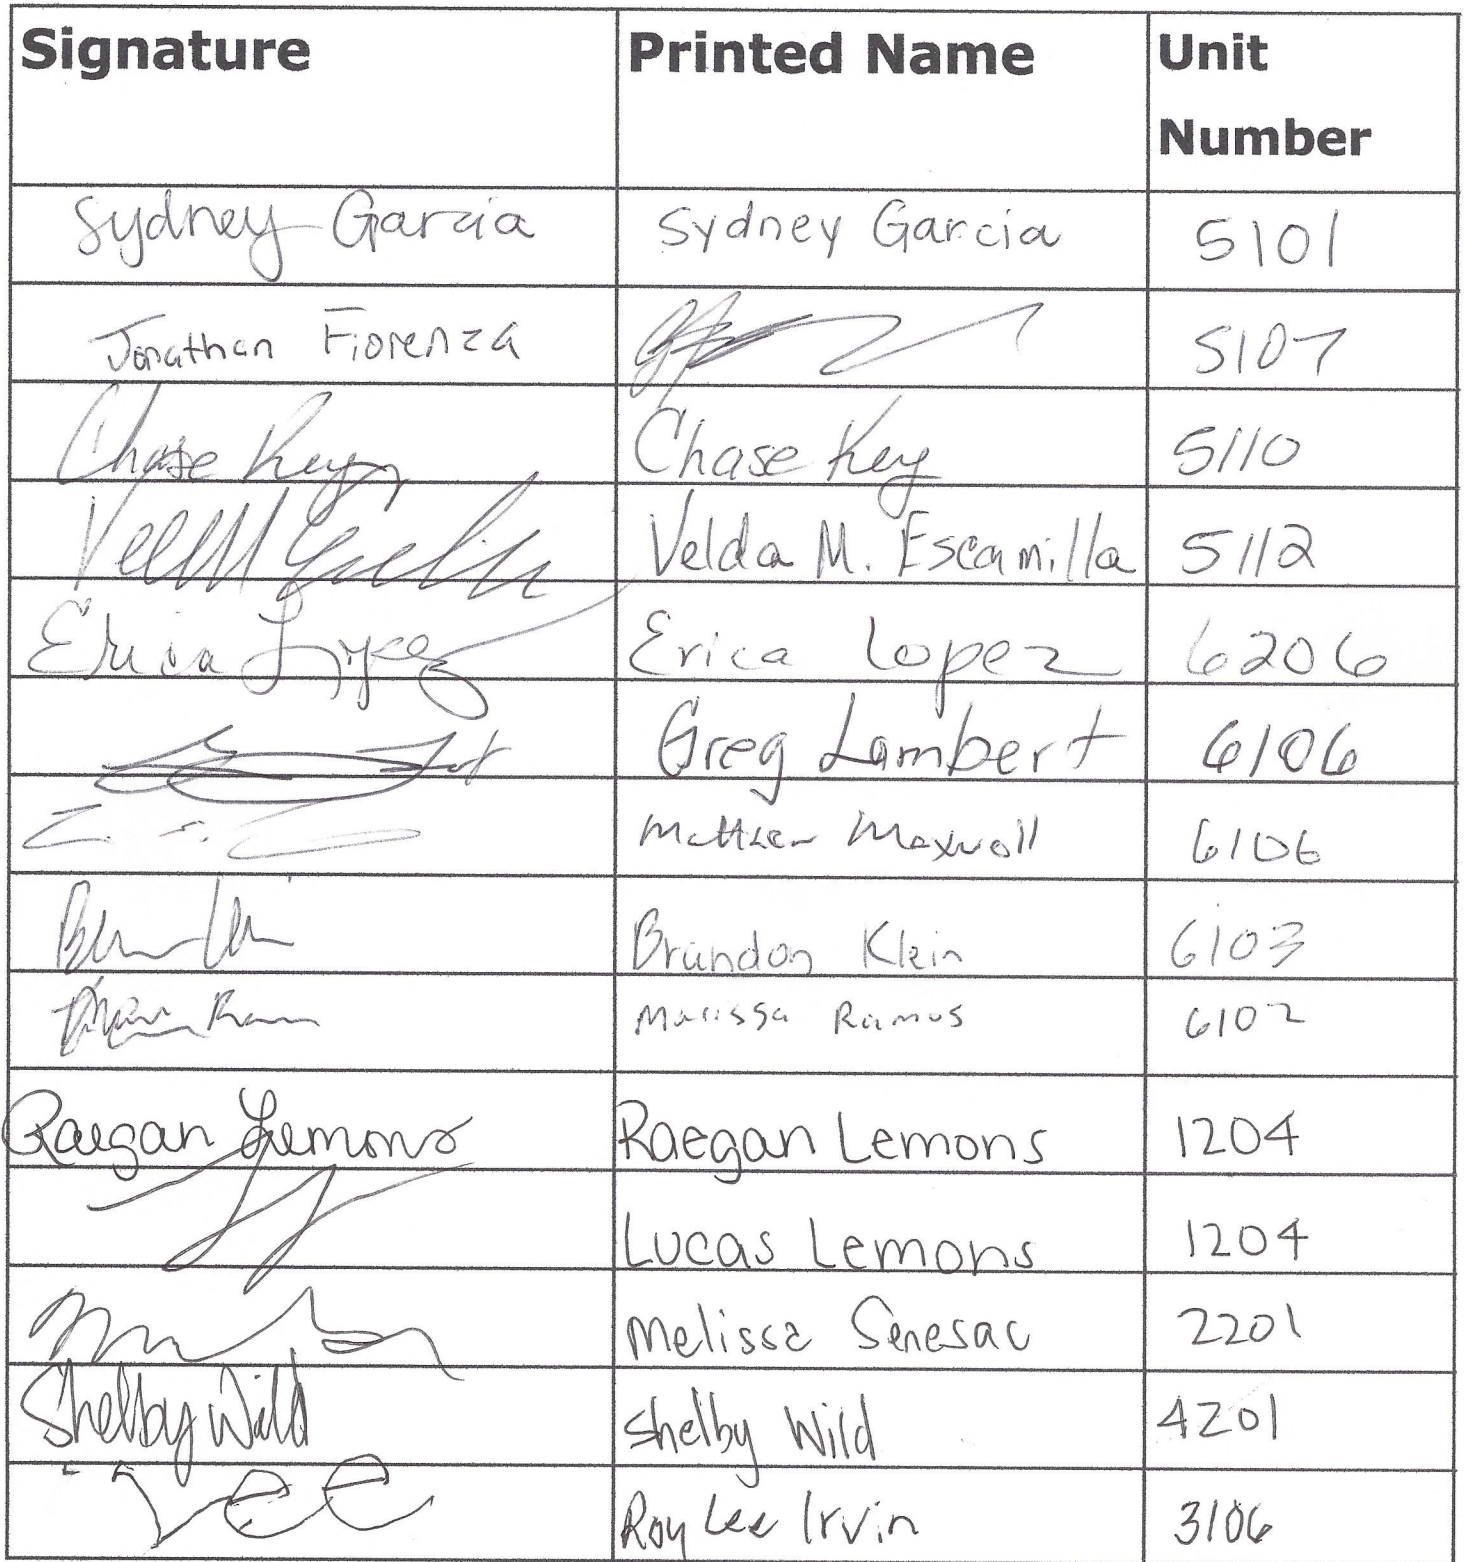 Signature Printed Name Unit
Number
Sydney Garcia Sydney Garcia 5101
Jonathan Fiorenza 5107
Chase Key Chase Key 5110
Velda M. Escamilla 5112
Erica Lopez Erica Lopez 6206
Greg Lambert 6106
Matthew Maxwell 6106
Brandon Klein 6103
Marissa Ramos 6102
Raegan Lemons Raegan Lemons 1204
Lucas Lemons 1204
Melissa Senesac 2201
Shelby Wild Shelby Wild 4201
Lee Roy Lee Irvin 3106